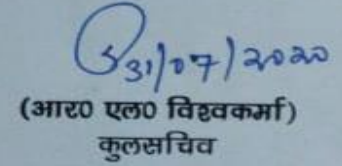 31/07/2020
(आर० एल० विश्वकर्मा)
कुलसचिव